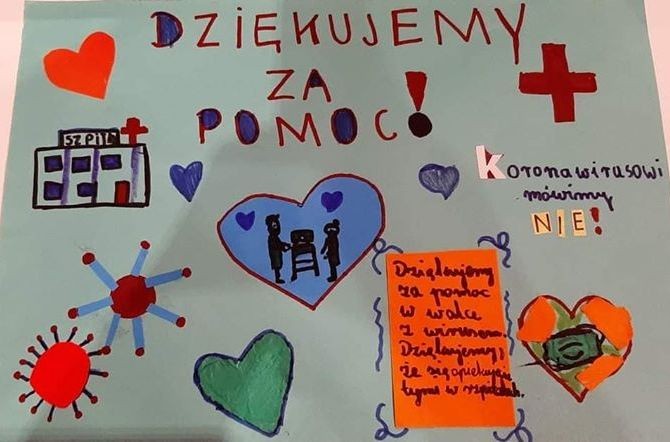 DZIĘKUJEMY
ZA
POMOC!
SZPITL
Koronawirusowi
mówimy
NIE!
Dziękujemy
za pomoc
w walce
z wirusem.
Dziękujemy,
że się opiekują
tymi w szpitalu.